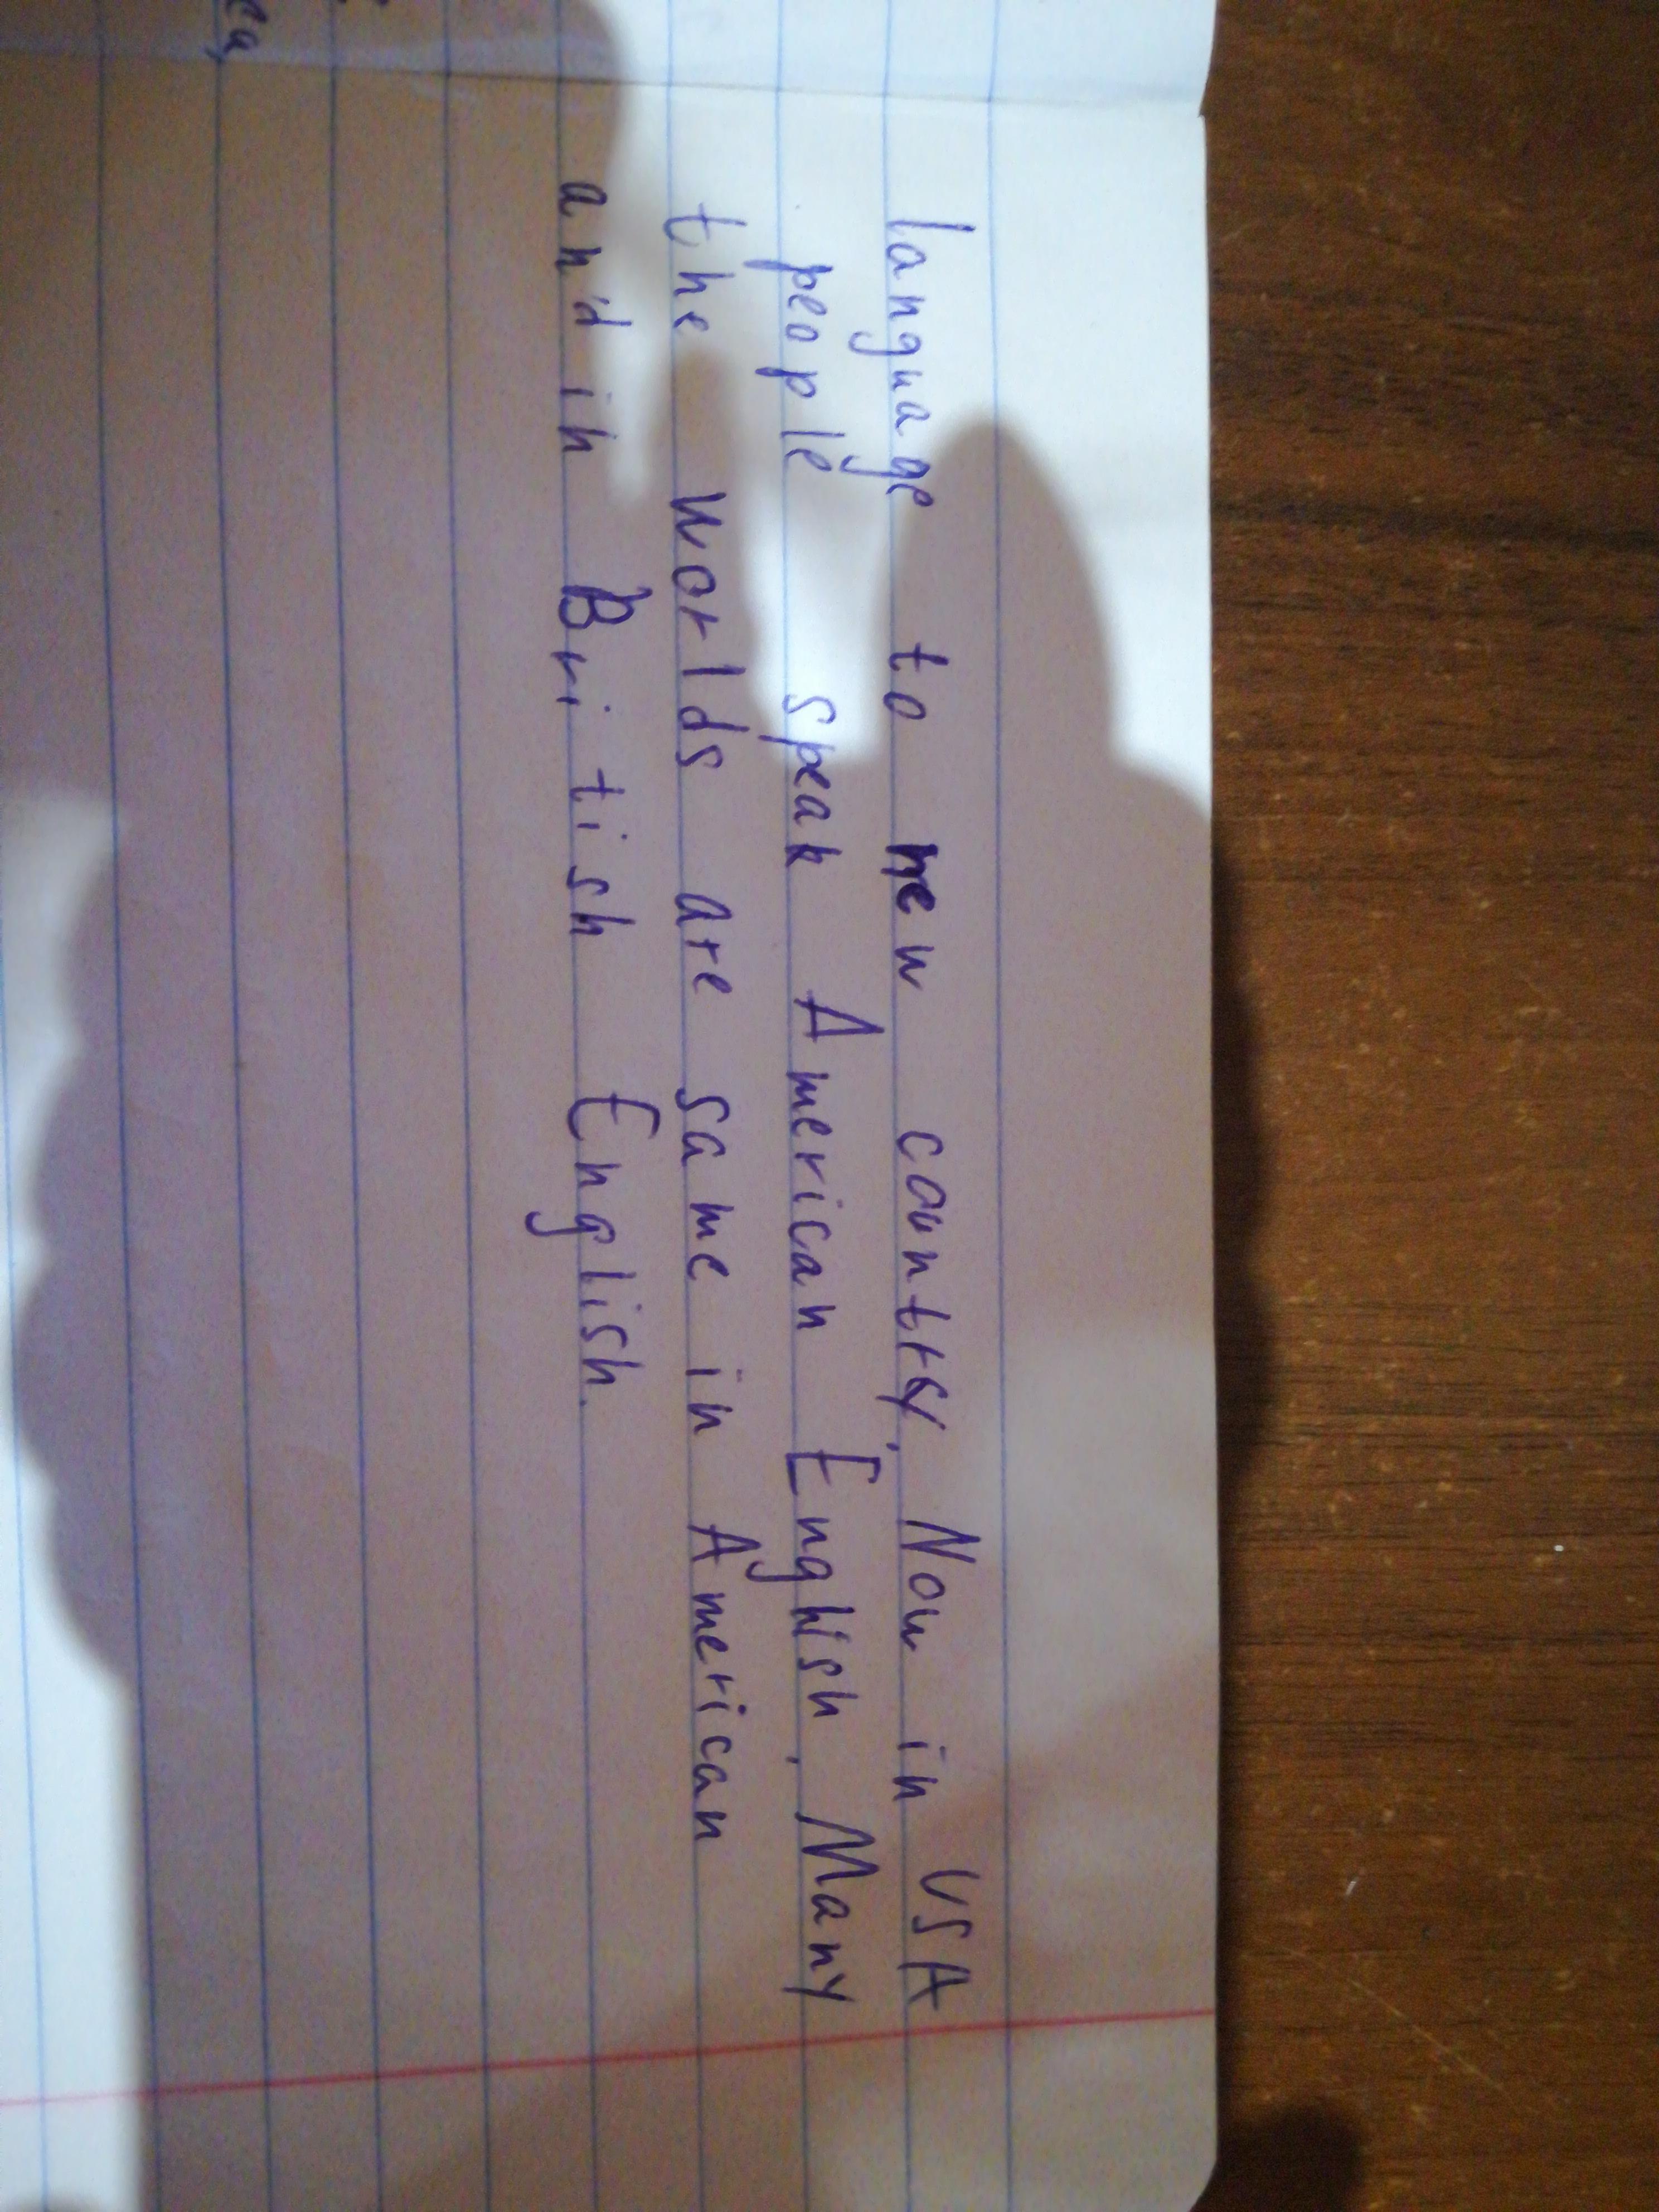 language to new country. Now in USA
people speak American English. Many
the worlds are same in American
and in British English.